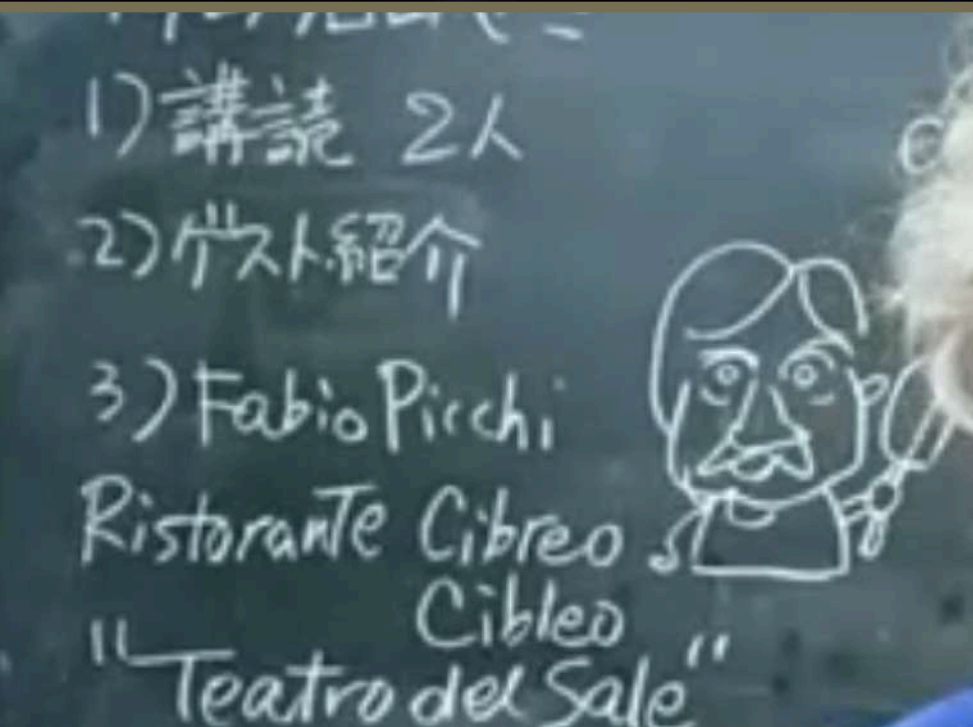 1) 講読 2人
2) ゲスト紹介
3) Fabio Picchi
Ristorante Cibreo
Cibleo
"Teatro del Sale"